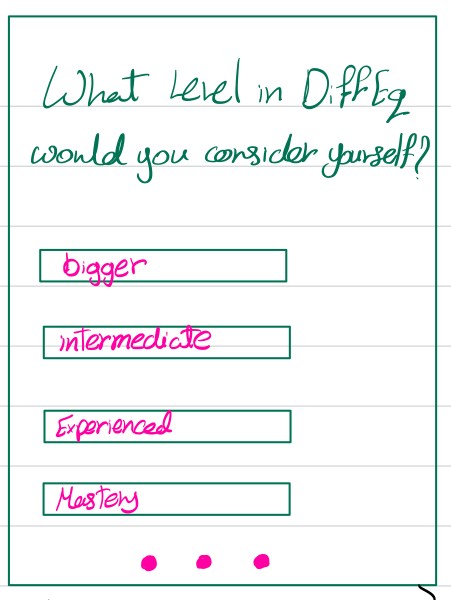 What Level in DiffEq
would you consider yourself?
bigger
intermediate
Experienced
Mastery